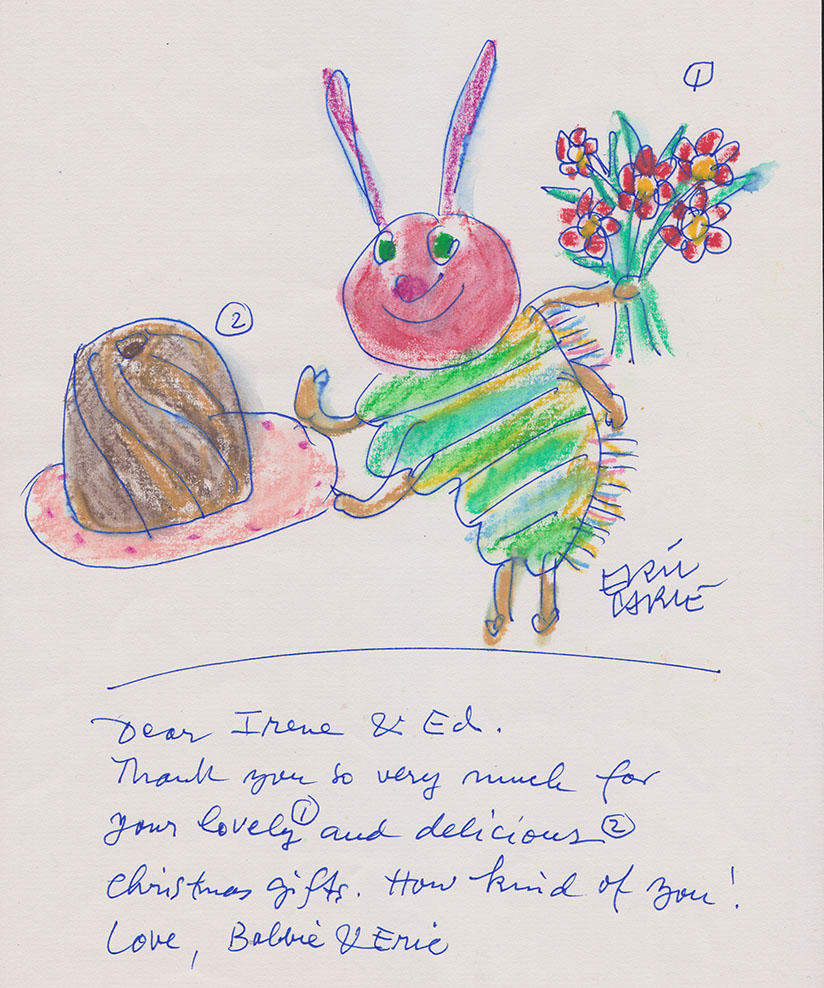 ①
②
ERIC
CARLE
Dear Irene & Ed.
Thank you so very much for
your lovely ① and delicious ②
Christmas gifts. How kind of you!
Love, Bobbie & Eric